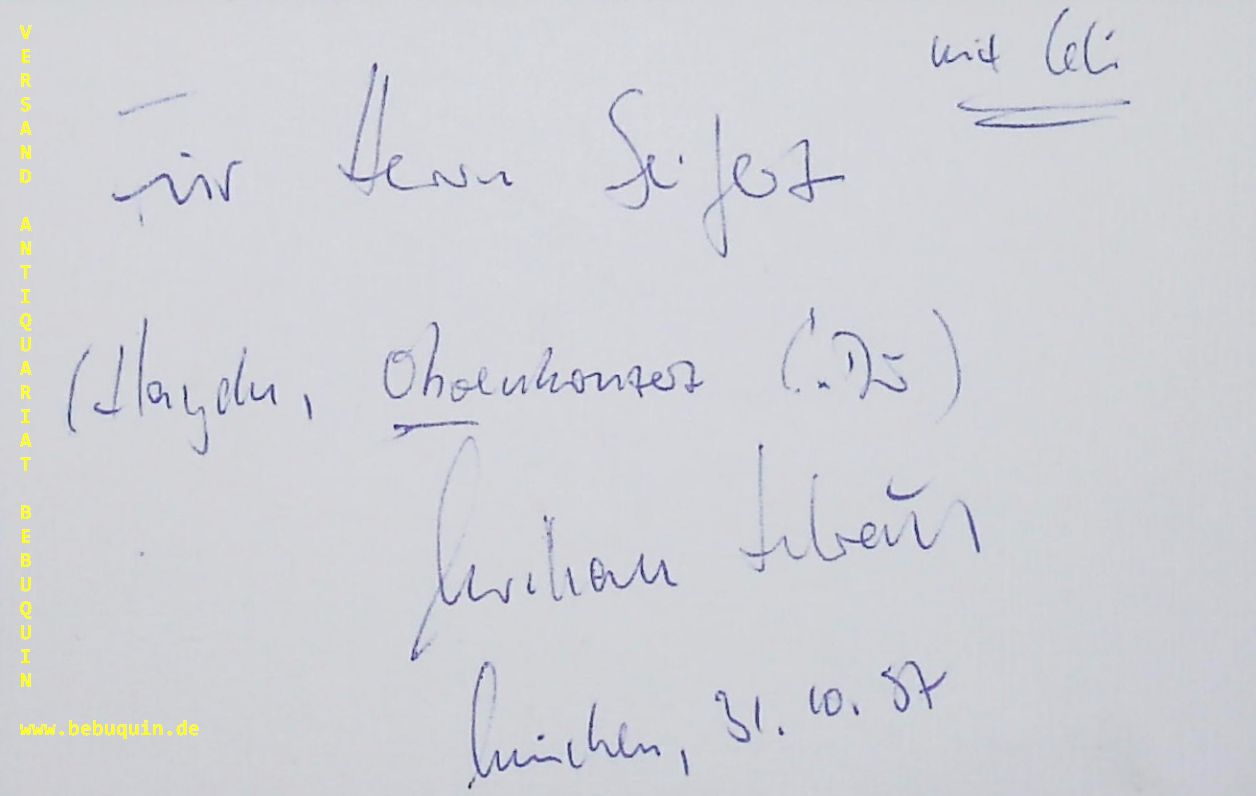 mit Celi
Für Herrn Seifert
(Haydn, Oboenkonzert
München, 31.10.87
VERSAND ANTIQUARIAT BEBUQUIN
www.bebuquin.de